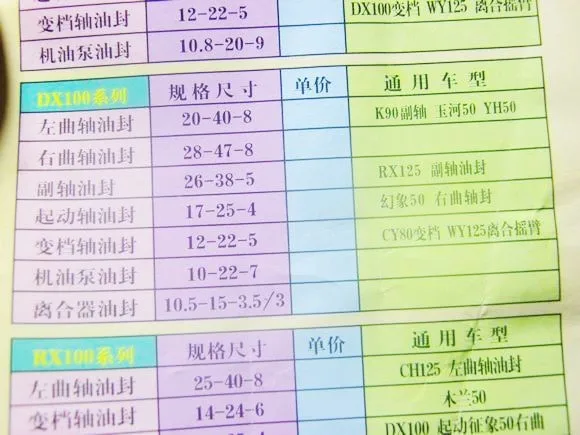 变档轴油封 12-22-5 DX100变档 WY125 离合摇臂
机油泵油封 10.8-20-9
DX100系列 规格尺寸 单价 通用车型
左曲轴油封 20-40-8 K90副轴 玉河50 YH50
右曲轴油封 28-47-8
副轴油封 26-38-5 RX125 副轴油封
起动轴油封 17-25-4 幻象50 右曲轴封
变档轴油封 12-22-5 CY80变档 WY125离合摇臂
机油泵油封 10-22-7
离合器油封 10.5-15-3.5/3
RX100系列 规格尺寸 单价 通用车型
左曲轴油封 25-40-8 CH125 左曲轴油封
变档轴油封 14-24-6 木兰50
DX100 起动征象50右曲